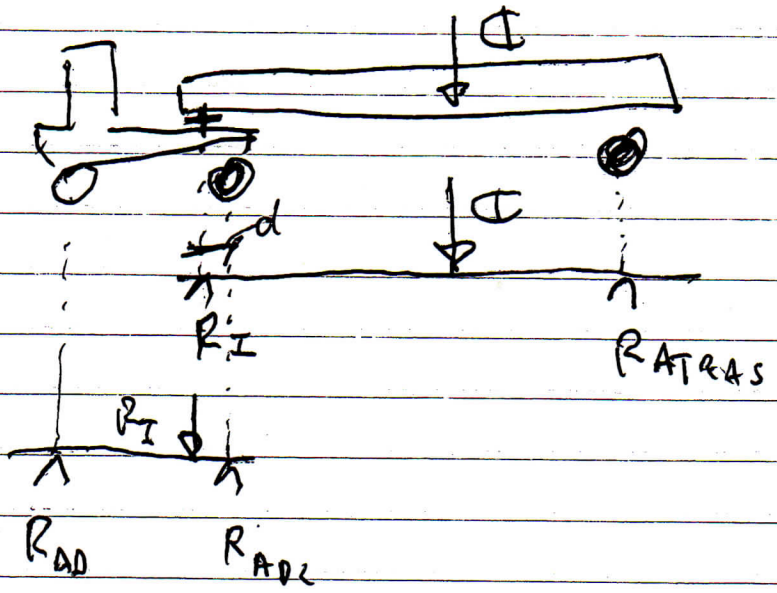 d
R_I
R_ATRAS
R_I
R_AD
R_AD2